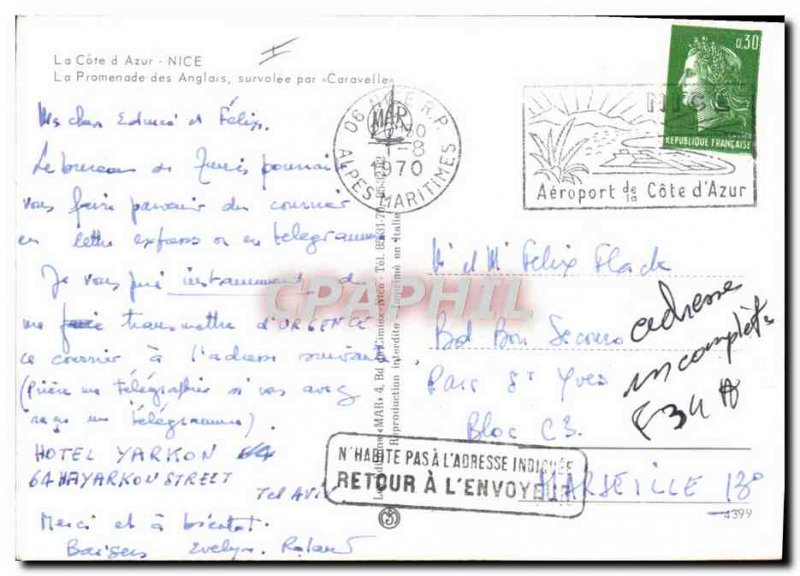 La Côte d'Azur - NICE
La Promenade des Anglais, survolée par «Caravelle»
Mes chers Edmée et Félix.
Le bureau de Tunis pourrai
vous faire parvenir du courrier
en lettre express ou en télégramme
Je vous prie instamment de
me faire transmettre d'URGENCE
ce courrier à l'adresse suivante
(Prière me télégraphier si vous avez
reçu un télégramme).
HOTEL YARKON 64
64 HAYARKON STREET
Tel AVIV
Merci et à bientôt.
Baisers Evelyn. Roland
06 NICE R.P.
MAR
-8
1970
ALPES MARITIMES
NICE
Aéroport de la Côte d'Azur
0,30
REPUBLIQUE FRANÇAISE
«MAR» 4, Bd de Cimiez-Nice Tél.
Reproduction interdite - Imprimé en Italie
CPAPHIL
M et Me Félix Flack
Bd Bon Secours
Parc St Yves
Bloc C3.
MARSEILLE 13°
adresse
incomplète
F34 A
N'HABITE PAS À L'ADRESSE INDIQUÉE
RETOUR À L'ENVOYEUR
4399